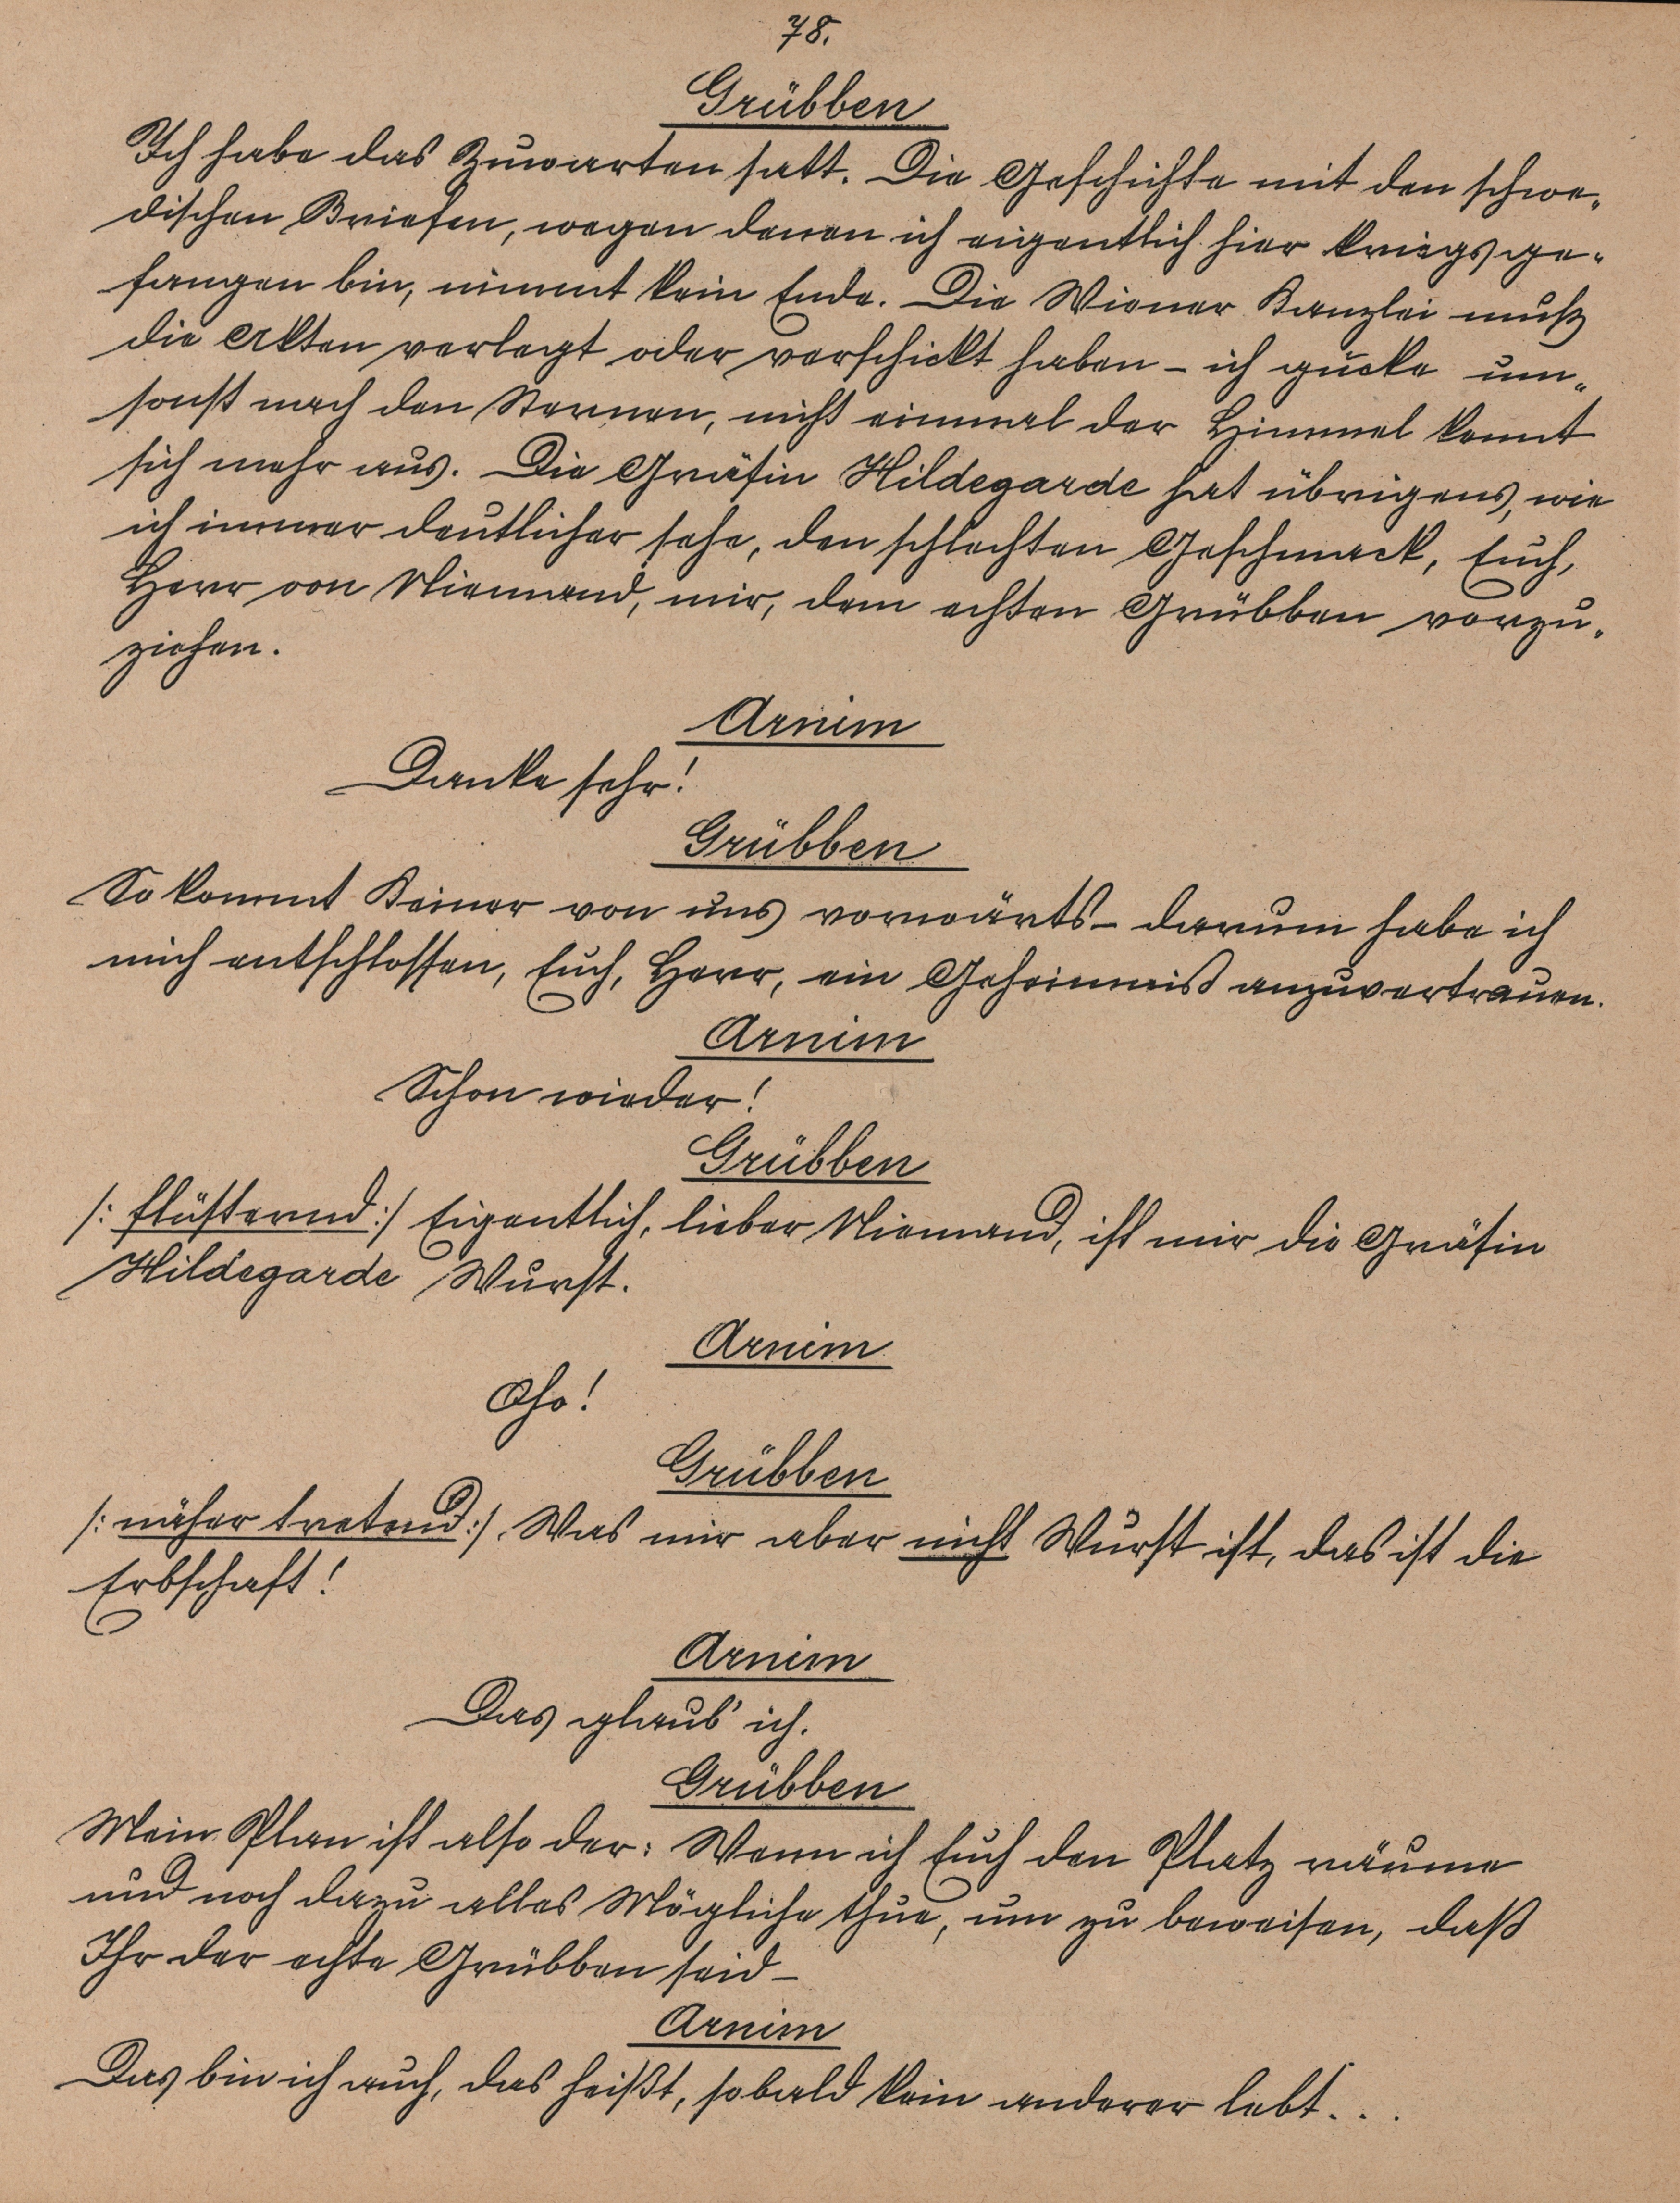 78.
Grübben
Ich habe das Zuwarten satt. Die Geschichte mit den schwe-
dischen Briefen, wegen denen ich eigentlich hier kriegsge-
fangen bin, nimmt kein Ende. Die Wiener Kanzlei muß
die Akten verlegt oder verschickt haben – ich gucke um-
sonst nach den Sternen, nicht einmal der Himmel kennt
sich mehr aus. Die Gräfin Hildegarde hat übrigens, wie
ich immer deutlicher sehe, den schlechten Geschmack, Euch,
Herr von Niemand, mir, dem echten Grübben vorzu-
ziehen.
Arnim
Danke sehr!
Grübben
So kommt Keiner von uns vorwärts – darum habe ich
mich entschlossen, Euch, Herr, ein Geheimniß anzuvertrauen.
Arnim
Schon wieder!
Grübben
/: flüsternd :/ Eigentlich, lieber Niemand, ist mir die Gräfin
Hildegarde Wurst.
Arnim
Oho!
Grübben
/: näher tretend :/. Was mir aber nicht Wurst ist, das ist die
Erbschaft!
Arnim
Das glaub' ich.
Grübben
Mein Plan ist also der: Wenn ich Euch den Platz räume
und noch dazu alles Mögliche thue, um zu beweisen, daß
Ihr der echte Grübben seid –
Arnim
Das bin ich auch, das heißt, sobald kein anderer lebt...